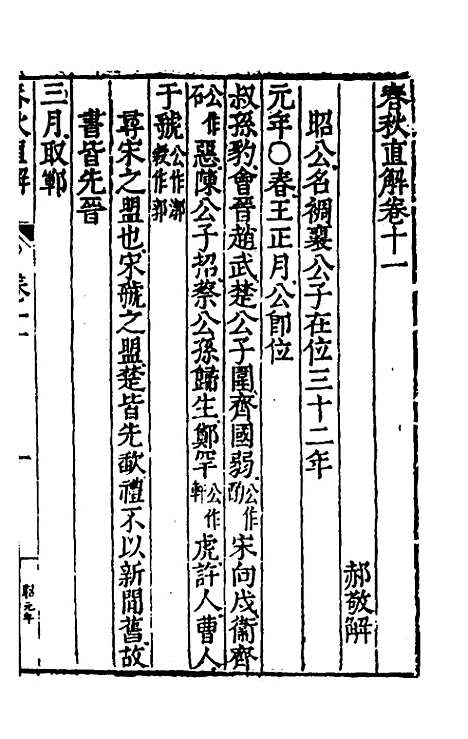 春秋直解卷十一
郝敬解
昭公名裯襄公子在位三十二年
元年○春王正月公卽位
叔孫豹會晉趙武楚公子圍齊國弱公作酌宋向戌衞齊
公作石惡陳公子招蔡公孫歸生鄭罕公作軒虎許人曹人
于虢公作漷穀作郭
尋宋之盟也宋虢之盟楚皆先歃禮不以新間舊故
書皆先晉
三月取鄆
春秋直解
卷十一
一
昭元年